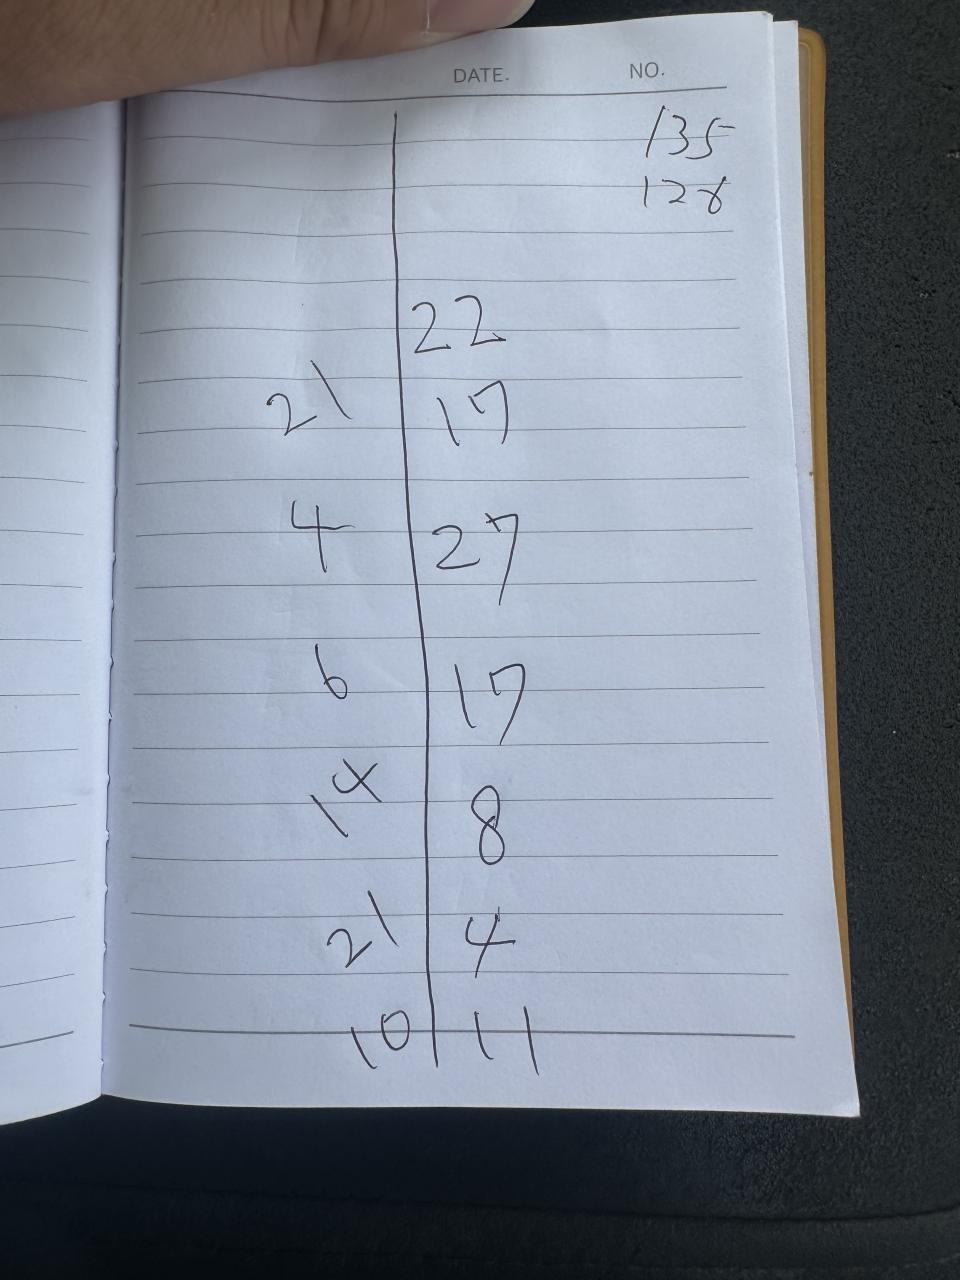 DATE. NO.
135
128
22
21 17
4 27
6 17
14 8
21 4
10 11